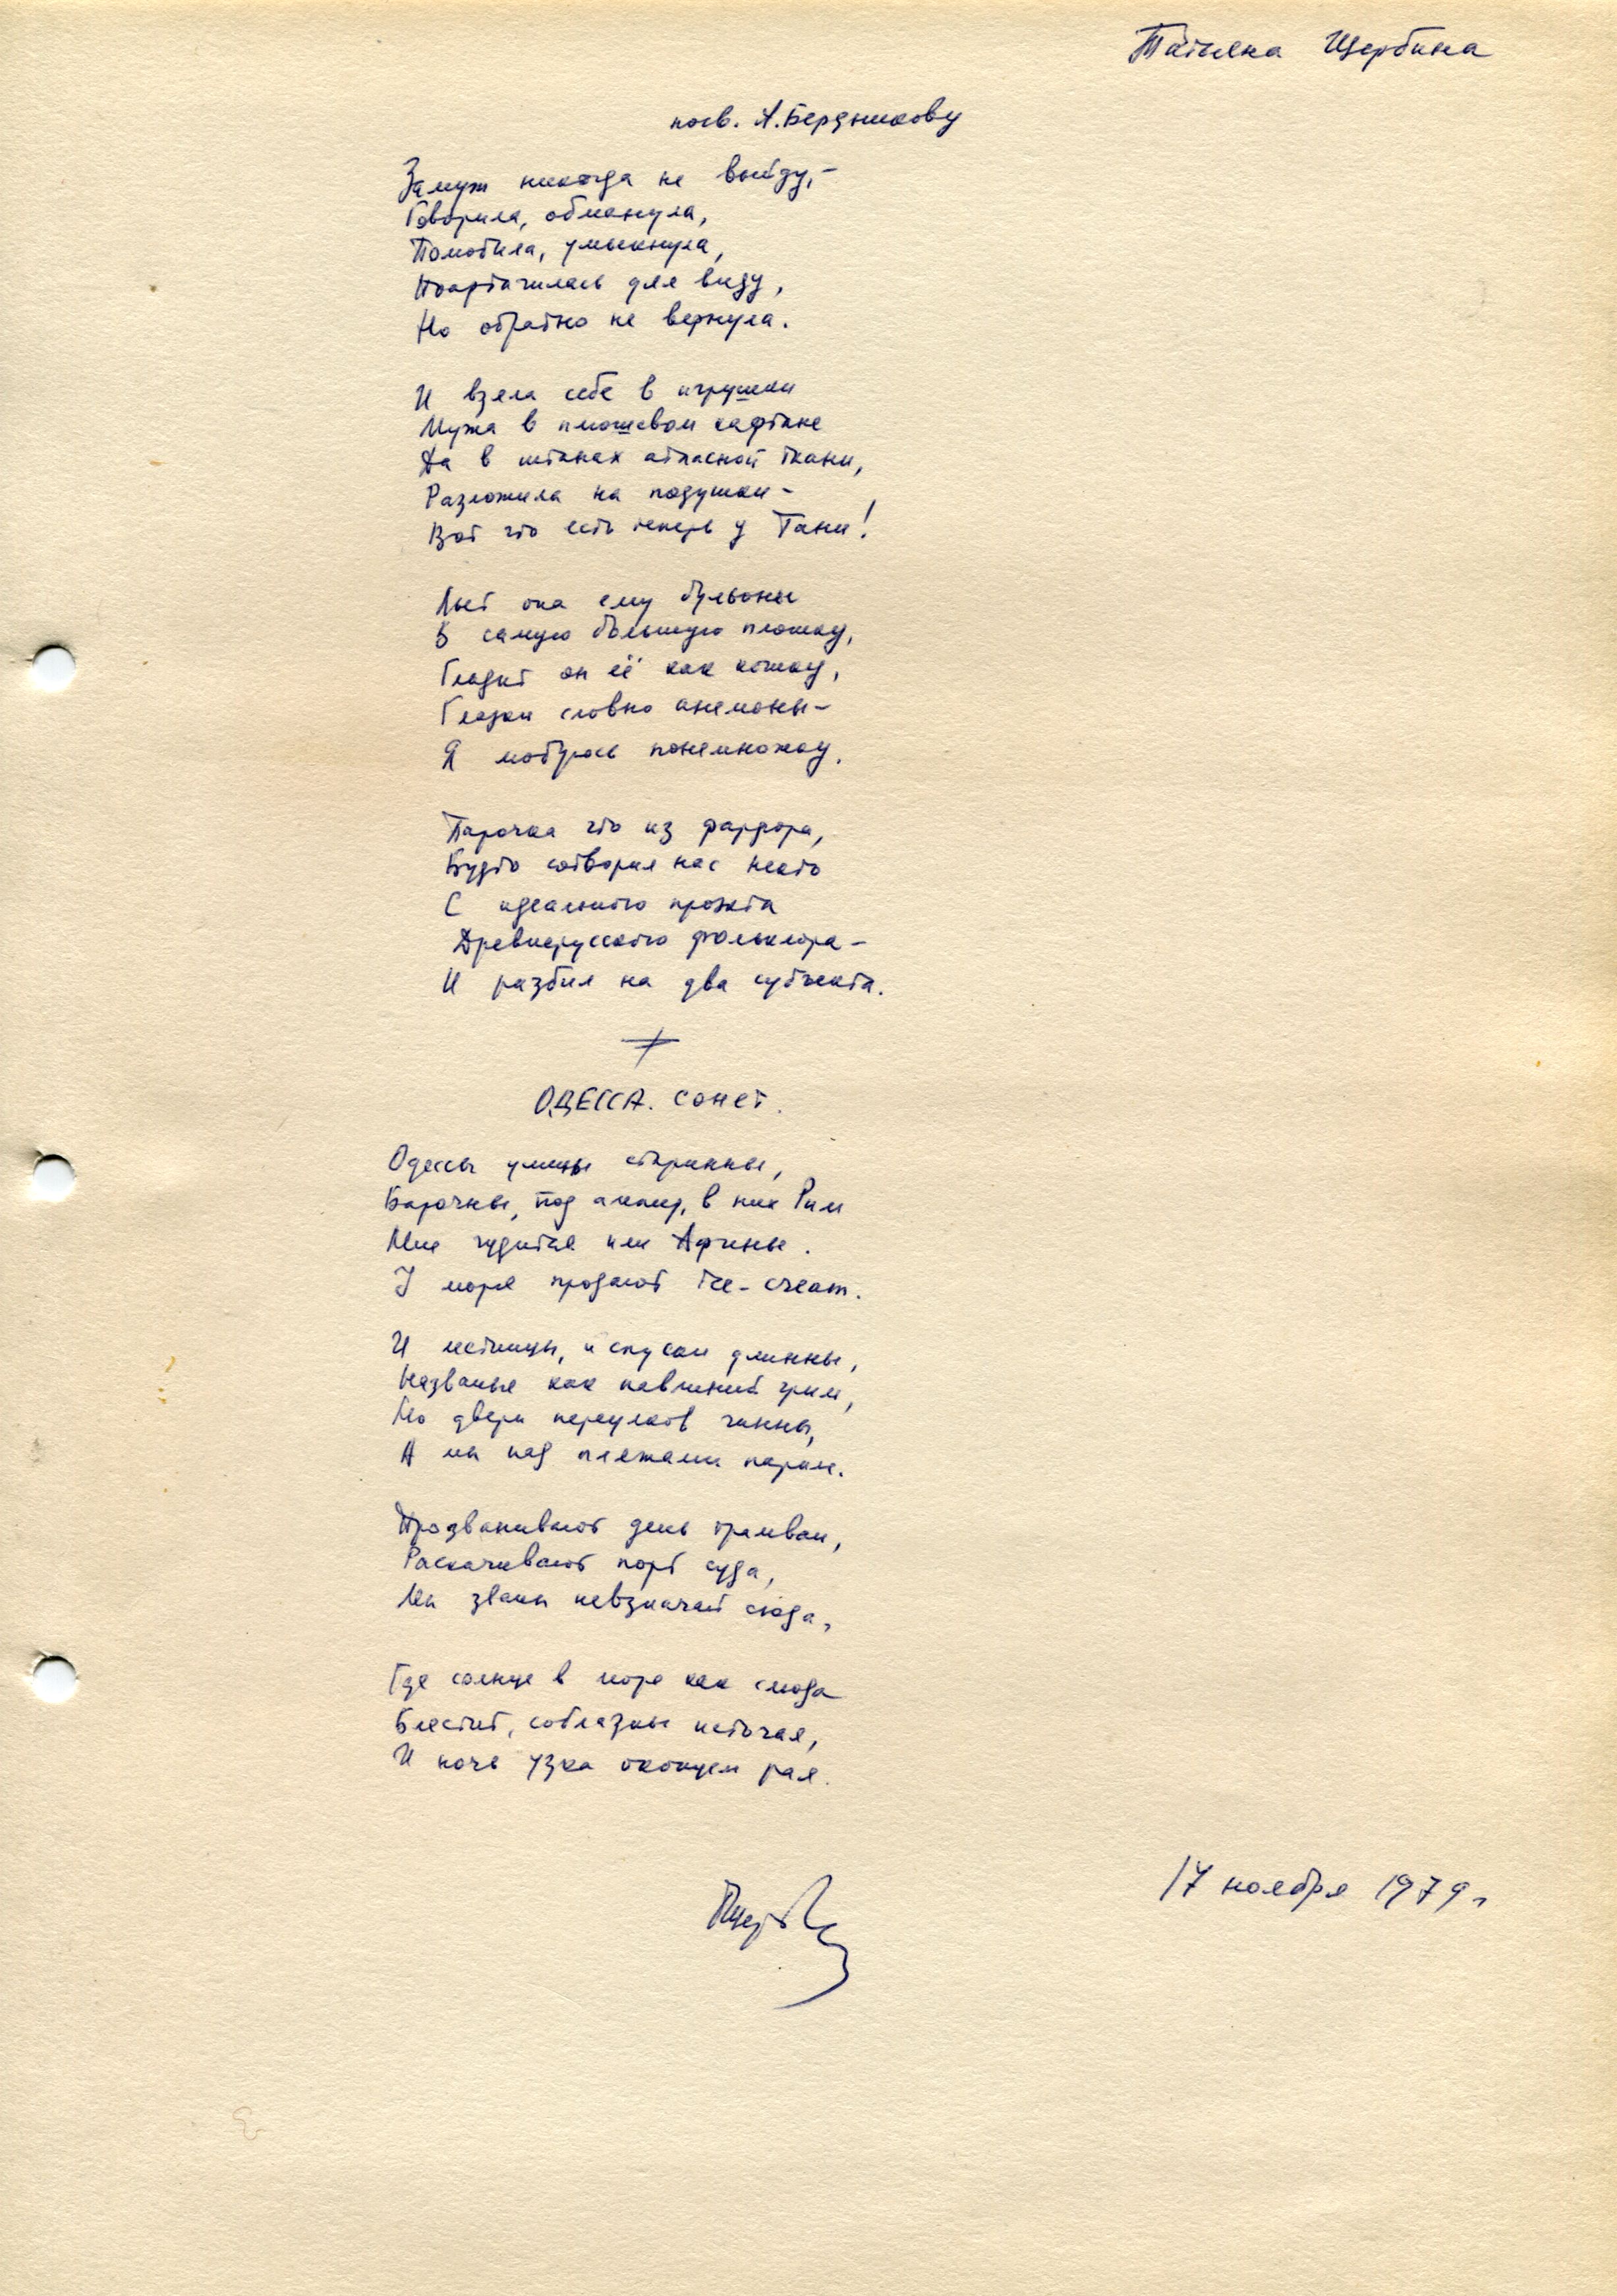 Татьяна Щербина
посв. А. Бердникову
Замуж никогда не выйду, –
Говорила, обманула,
Полюбила, умыкнула,
Поартачилась для виду,
Но обратно не вернула.
И взяла себе в игрушки
Мужа в плюшевом кафтане
Да в штанах атласной ткани,
Разложила на подушки –
Вот что есть теперь у Тани!
Льёт она ему бульоны
В самую большую плошку,
Гладит он её как кошку,
Глазки словно анемоны –
Я любуюсь понемножку.
Парочка что из фарфора,
Будто сотворил нас некто
С идеального проекта
Древнерусского фольклора –
И разбил на два субъекта.
ОДЕССА. Сонет.
Одессы улицы старинны,
Барочны, под амфир, в них Рим
Мне чудится или Афины.
У моря продают Ice-cream.
И лестницы, и спуски длинны,
Названья как навечный грим,
Но двери переулков чинны,
А мы над пляжами парим.
Прозванивают день трамваи,
Раскачивают порт суда,
Мы званы невзначай сюда,
Где солнце в море как слюда
Блестит, соблазны источая,
И ночь узка оконцем рая.
17 ноября 1979 г.